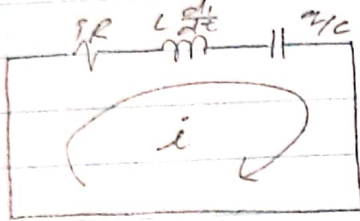 iR L di/dt q/C
i